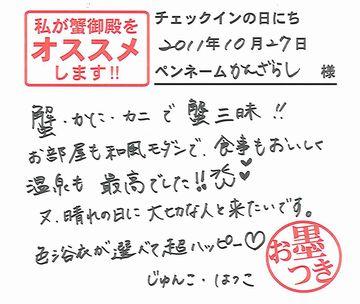 私が蟹御殿を
オススメ
します!!
チェックインの日にち
2011年10月27日
ペンネーム かんざらし 様
蟹・かに・カニで蟹三昧!!
お部屋も和風モダンで、食事もおいしく
温泉も最高でした!!
又、晴れの日に大切な人と来たいです。
色浴衣が選べて超ハッピー♡
じゅんこ・はっこ
お墨つき